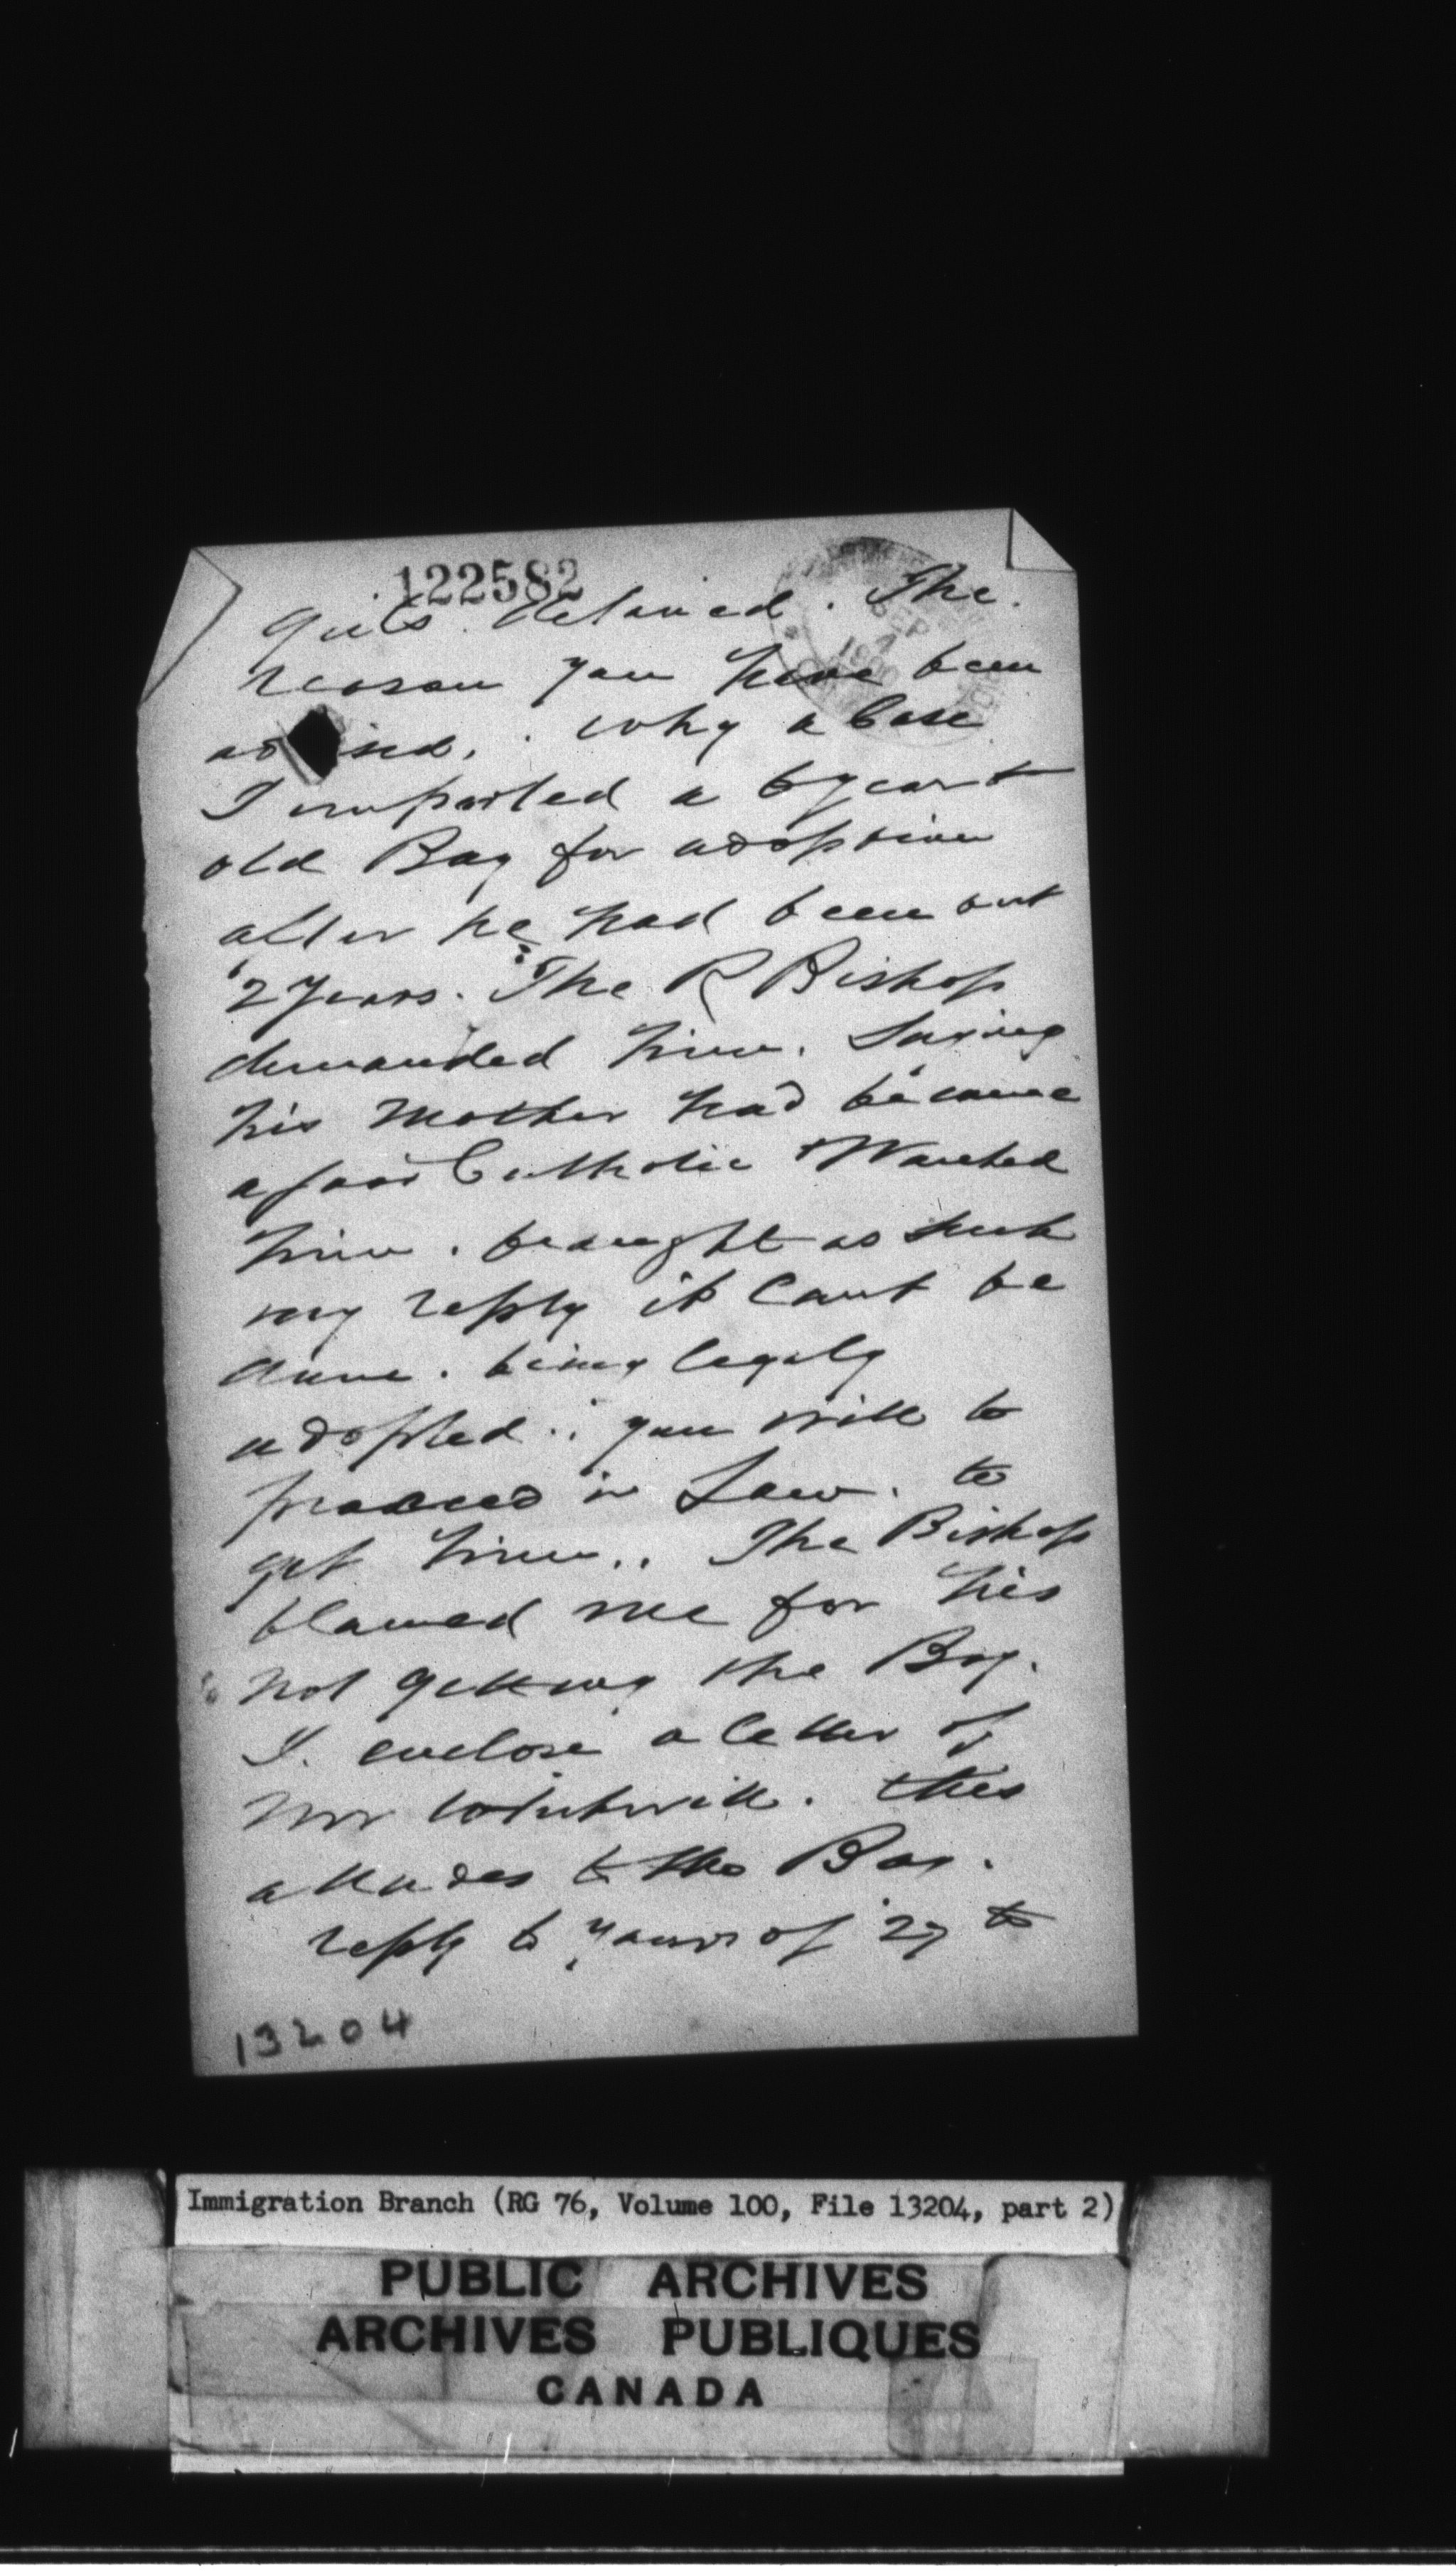 122582
girls detained. The
reason you have been
advised. why a Case
I imported a 6 year
old Boy for adoption
after he had been out
2 Years. The R Bishop
demanded him. Saying
his Mother had became
a good Catholic & Wanted
him. brought as such
my reply it Cant be
done. being legaly
adopted.. you will to
proceed in Law. to
get him.. The Bishop
blamed me for his
not getting the Boy.
I. enclose a letter of
Mr
this
alludes to the Boy.
reply to yours of 27th
13204
Immigration Branch (RG 76, Volume 100, File 13204, part 2)
PUBLIC ARCHIVES
ARCHIVES PUBLIQUES
CANADA